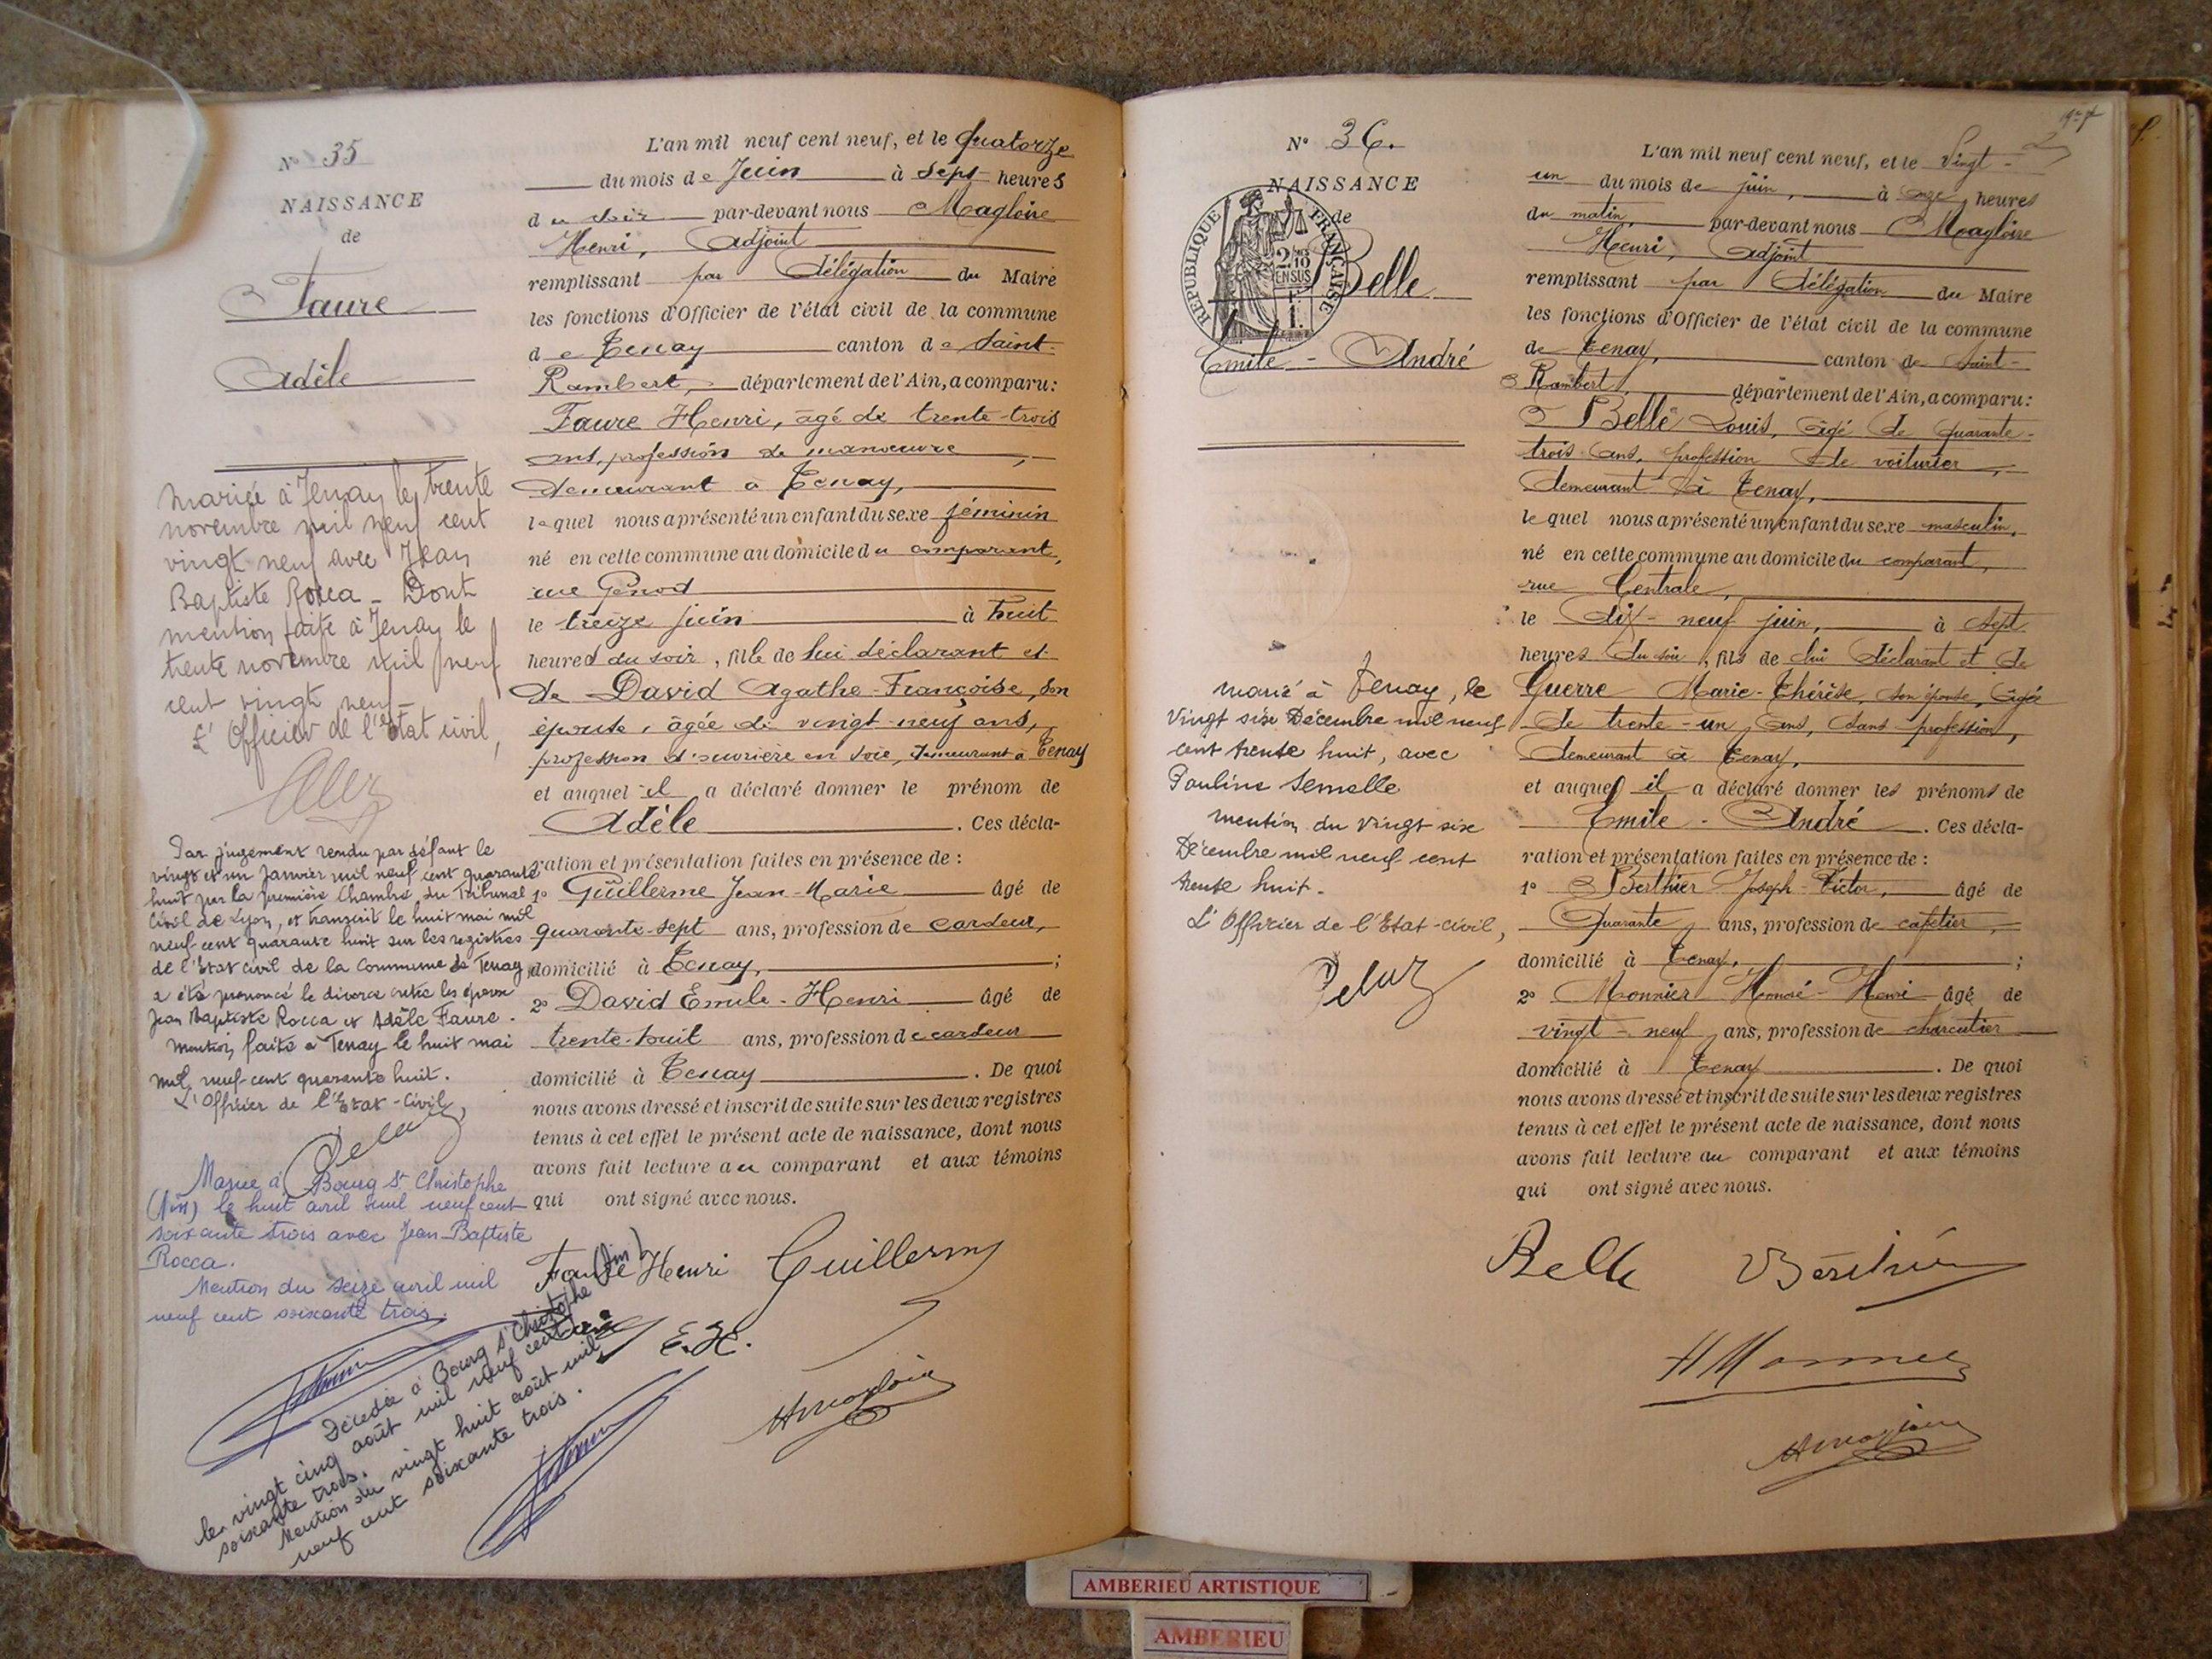 N° 35
NAISSANCE
de
Faure
Adèle
Mariée à Tenay le trente
novembre mil neuf cent
vingt neuf avec Jean
Baptiste Rocca _ Dont
mention faite à Tenay le
trente novembre mil neuf
cent vingt neuf _
L'Officier de l'Etat civil,
Par jugement rendu par défaut le
vingt et un Janvier mil neuf cent quarante
huit par la première Chambre du Tribunal
Civil de Lyon, et transcrit le huit mai mil
neuf cent quarante huit sur les registres
de l'Etat civil de la Commune de Tenay
a été prononcé le divorce entre les époux
Jean Baptiste Rocca et Adèle Faure.
Mention faite à Tenay le huit mai
mil neuf-cent quarante huit.
L'Officier de l'Etat-Civil,
Mariée à Bourg St Christophe
(Ain) le huit avril mil neuf cent
soixante trois avec Jean-Baptiste
Rocca.
Mention du seize avril mil
neuf cent soixante trois.
Décédée à Bourg St Christophe (Ain)
le vingt cinq août mil neuf cent
soixante trois.
Mention du vingt huit août mil
neuf cent soixante trois.
L'an mil neuf cent neuf, et le Quatorze
du mois de Juin à Sept heures
du soir par-devant nous Magloire
Henri, Adjoint
remplissant par délégation du Maire
les fonctions d'Officier de l'état civil de la commune
de Tenay canton de Saint-
Rambert, département de l'Ain, a comparu:
Faure Henri, âgé de trente-trois
ans, profession de manœuvre,
demeurant à Tenay,
lequel nous a présenté un enfant du sexe féminin
né en cette commune au domicile du comparant,
rue Génod
le treize juin à huit
heures du soir, fille de lui déclarant et
de David Agathe-Françoise, son
épouse, âgée de vingt-neuf ans,
profession d'ouvrière en soie, demeurant à Tenay
et auquel il a déclaré donner le prénom de
Adèle. Ces décla-
ration et présentation faites en présence de :
1° Guillerme Jean-Marie âgé de
quarante-sept ans, profession de cardeur,
domicilié à Tenay, ;
2° David Emile-Henri âgé de
trente-huit ans, profession de cardeur
domicilié à Tenay. De quoi
nous avons dressé et inscrit de suite sur les deux registres
tenus à cet effet le présent acte de naissance, dont nous
avons fait lecture au comparant et aux témoins
qui ont signé avec nous.
Faure Henri Guillerm
E.H.
HMagloire
N° 36.
NAISSANCE
de
REPUBLIQUE FRANÇAISE
2/10
EN SUS
Belle
Emile - André
Marié à Tenay, le
vingt six Décembre mil neuf
cent trente huit, avec
Pauline Semelle
Mention du vingt six
Décembre mil neuf cent
trente huit.
L'Officier de l'Etat-civil,
L'an mil neuf cent neuf, et le Vingt-
un du mois de juin, à onze heures
du matin, par-devant nous Magloire
Henri, adjoint
remplissant par délégation du Maire
les fonctions d'Officier de l'état civil de la commune
de Tenay, canton de Saint-
Rambert, département de l'Ain, a comparu:
Belle Louis, âgé de Quarante-
trois ans, profession de voiturier,
demeurant à Tenay,
lequel nous a présenté un enfant du sexe masculin,
né en cette commune au domicile du comparant,
rue Centrale,
le dix-neuf juin, à sept
heures du soir, fils de lui déclarant et de
Guerre Marie-Thérèse, son épouse, âgée
de trente-un ans, sans profession,
demeurant à Tenay,
et auquel il a déclaré donner les prénoms de
Emile - André. Ces décla-
ration et présentation faites en présence de :
1° Berthier Joseph-Victor, âgé de
Quarante ans, profession de cafetier,
domicilié à Tenay, ;
2° Monnier Honoré-Henri âgé de
vingt-neuf ans, profession de charcutier
domicilié à Tenay. De quoi
nous avons dressé et inscrit de suite sur les deux registres
tenus à cet effet le présent acte de naissance, dont nous
avons fait lecture au comparant et aux témoins
qui ont signé avec nous.
Belle Berthier
H Monnier
HMagloire
AMBERIEU ARTISTIQUE
AMBERIEU